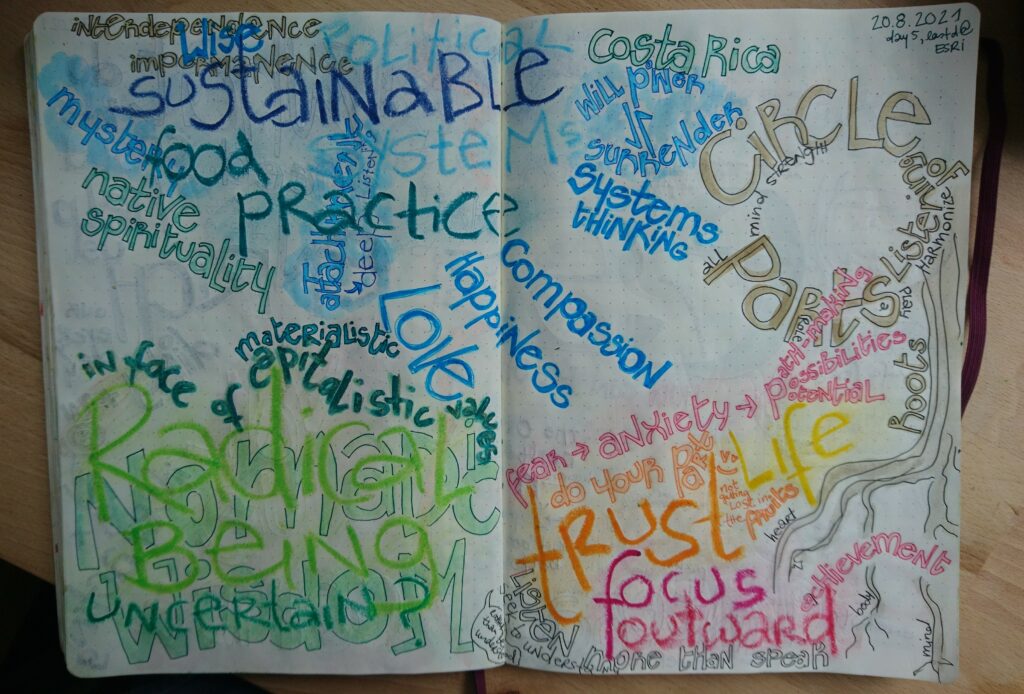 interdependence
wise
impermanence
Political
sustainable
systems
mystery
food
native
spirituality
practice
attachment
→ deep listening
Costa Rica
20.8.2021
day 5, last d@
ESRI
will power
surrender
systems
thinking
Circle of
Parts
all
mind
STRENGTH
Listen
HARMONIZE
Play
a
Role
Love
Happiness
Compassion
materialistic
capitalistic
values
in face of
Radical
Being
Nomadic
Wisdom
uncertain?
fear → anxiety → potential
possibilities
path-making
Roots
do your part
not
getting
lost in
the fruits
trust
Life
heart
focus
outward
achievement
body
mind
Listen
seek to understand
more than speak